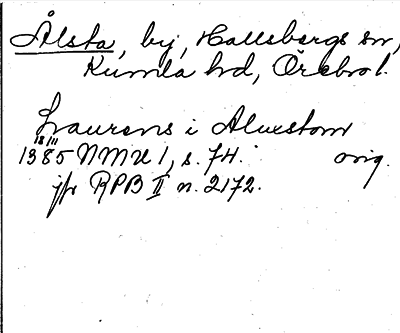 Ålsta, by, Hallsbergs sn,
Kumla hd, Örebro l.
Laurens i Alvestom
18/11
1385 NMU 1, s. 74. orig.
jfr RPB II n. 2172.